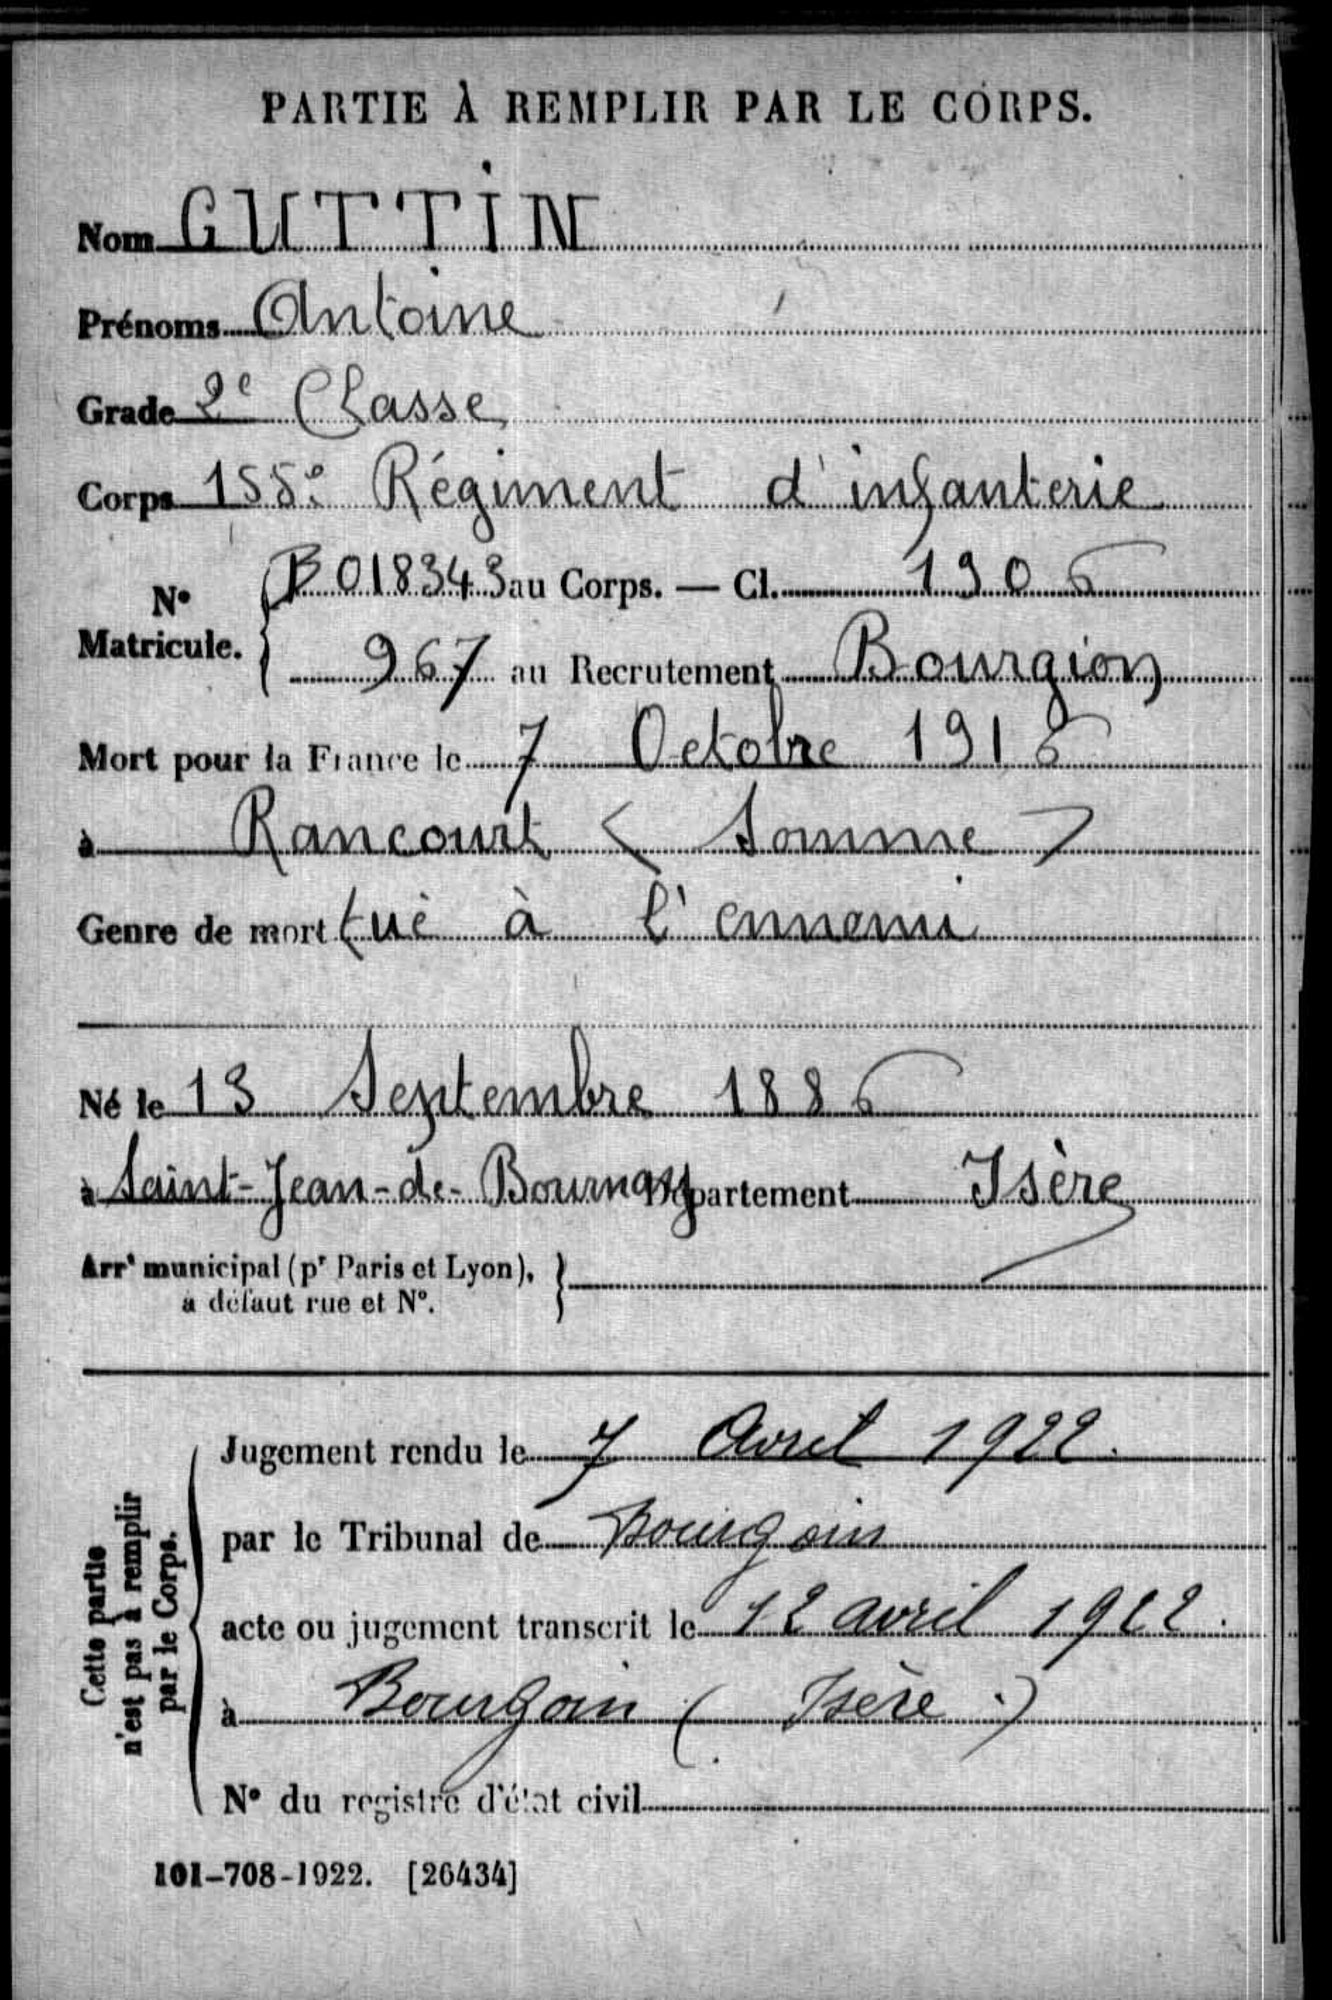 PARTIE À REMPLIR PAR LE CORPS.
Nom GUTTIN
Prénoms Antoine
Grade 2e Classe
Corps 155e Régiment d'infanterie
No Matricule. { B018343 au Corps. — Cl. 1906
967 au Recrutement Bourgion
Mort pour la France le 7 Octobre 1916
à Rancourt < Somme >
Genre de mort tué à l'ennemi
Né le 13 Septembre 1886
à Saint-Jean-de-Bournay Département Isère
Arrt municipal (pr Paris et Lyon), }
à défaut rue et No.
Cette partie
n'est pas à remplir
par le Corps.
Jugement rendu le 7 Avril 1922.
par le Tribunal de Bourgoin
acte ou jugement transcrit le 12 avril 1922.
à Bourgoin (Isère.)
No du registre d'état civil
101-708-1922. [26434]